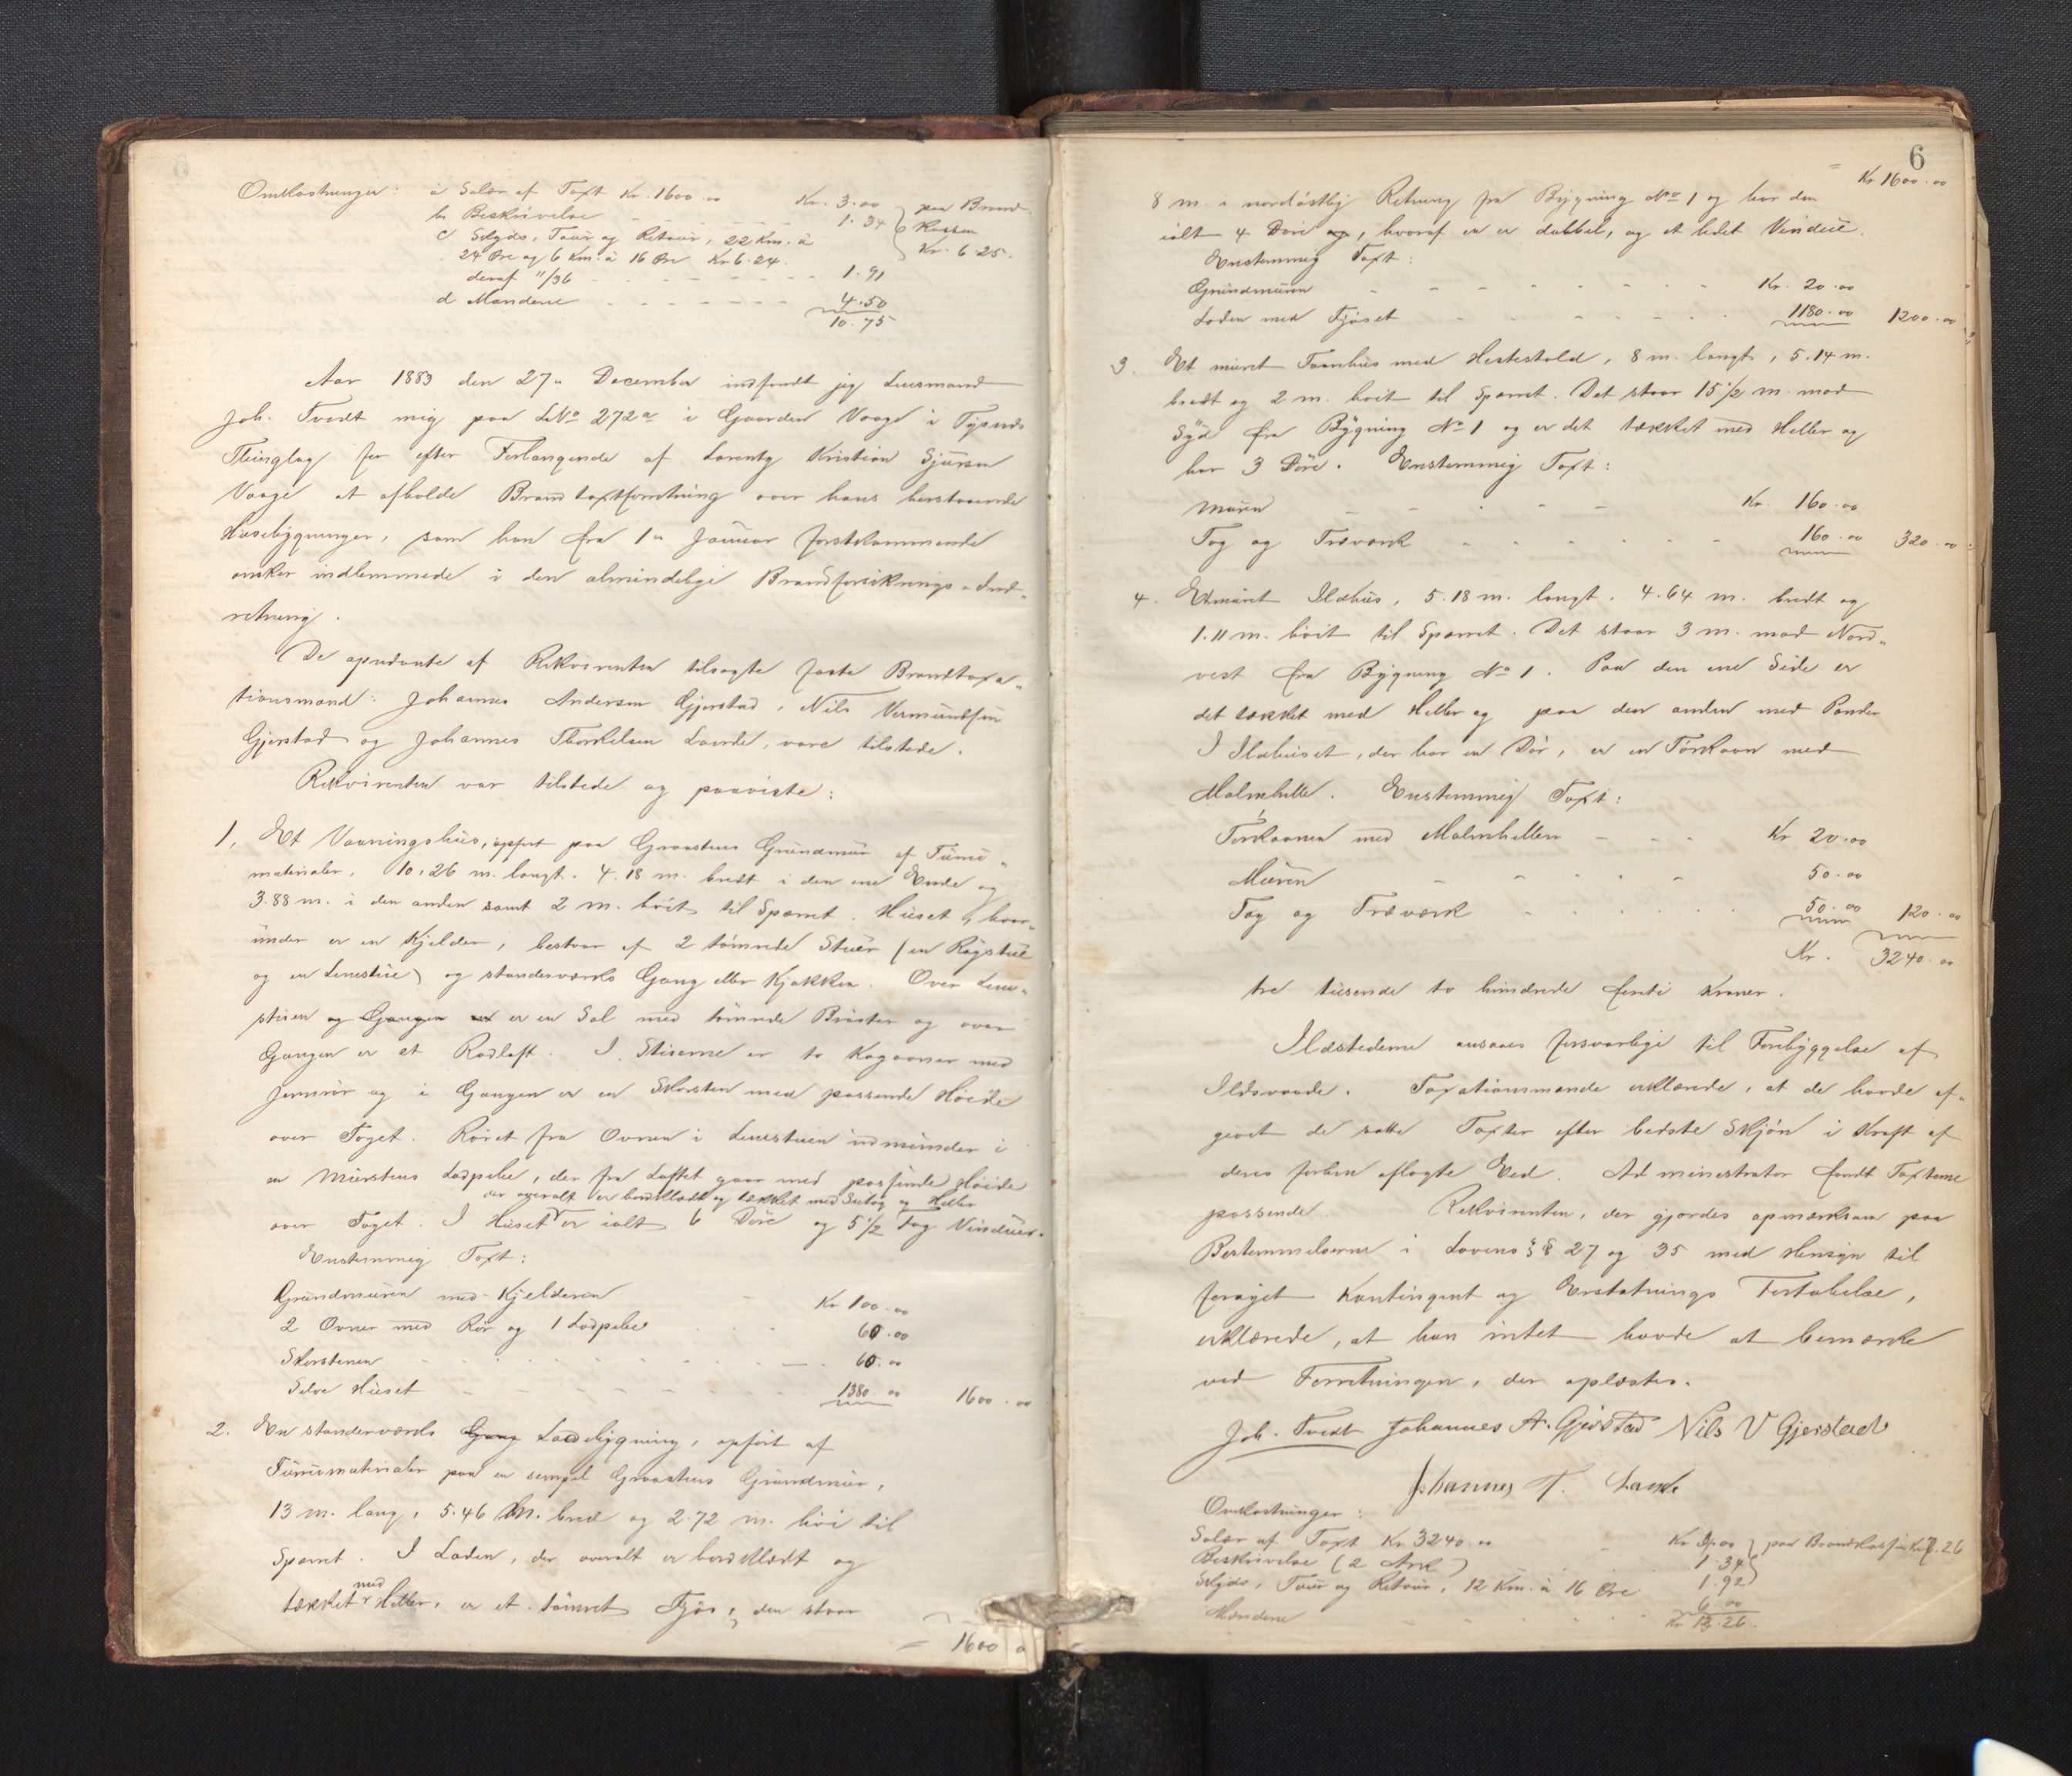 Omkostninger: a Salær af Taxt Kr. 1600.00 Kr. 3.00 paa Brand-
b. Beskrivelse - - - 1.34 Kassen
c Skyds, Tour og Retour, 22 Km. à Kr. 6.25.
24 Øre og 6 Km. à 16 Øre Kr 6.24.
deraf 11/36 - - - - - - 1.91
d Mændene - - - - - - 4.50
10.75
Aar 1883 den 27de December indfandt jeg Lensmand
Joh. Tvedt mig paa LNo 272a i Gaarden Vaage i Tysnæs
Thinglag for efter Forlangende af Lorentz Kristian Sjursen
Vaage at afholde Brandtaxtforretning over hans herstaaende
Husebygninger, som han fra 1de Januar førstkommende
ønsker indlemmede i den almindelige Brandforsikrings-Ind-
retning.
De opnævnte af Rekvirenten tilsagte faste Brandtaxa-
tionsmænd: Johannes Andersen Gjerstad, Nils Vermundsen
Gjerstad og Johannes Thorkelsen Lande, vare tilstede.
Rekvirenten var tilstede og paaviste:
1. Et Vaaningshus, opført paa Graastens Grundmur af Furu-
materialer, 10.26 m. langt, 4.18 m. bredt i den ene Ende og
3.88 m. i den anden samt 2 m. høit til Sparret. Huset, hvor-
under er en Kjelder, bestaar af 2 tømrede Stuer (en Røgstue
og en Lemstue) og standerværks Gang eller Kjøkken. Over Lem-
stuen og Gangen er en Sal med tømrede Brøster og over
Gangen er et Rodloft. I Stuerne er to Kogovner med
Jernrør og i Gangen er en Skorsten med passende Høide
over Taget. Røret fra Ovnen i Lemstuen udmunder i
en Murstens Lodpibe, der fra Loftet gaar med passende Høide
der overalt er bordklædt og tækket med Sutag og Heller
over Taget. I Huset er ialt 6 Døre og 5 1/2 Fag Vinduer.
Enstemmig Taxt:
Grundmuren med Kjelderen - Kr 100.00
2 Ovner med Rør og 1 Lodpibe - - - 60.00
Skorstenen - - - - - - 60.00
Selve Huset - - - - - - 1380.00 1600.00
2. En standerværks Gang Ladebygning, opført af
Furumaterialer paa en simpel Graastens Grundmur,
13 m. lang, 5.46 m. bred og 2.72 m. høi til
Sparret. I Laden, der overalt er bordklædt og
med
tækket Heller, er et tømret Fjøs, den staar
= 1600.00
6
= Kr 1600.00
8 m. i nordøstlig Retning fra Bygning No 1 og har den
ialt 4 Døre og, hvoraf en er dobbel, og et lidet Vindue.
Enstemmig Taxt:
Grundmuren - - - - - - Kr. 20.00
Laden med Fjøset - - - - - - 1180.00 1200.00
3. Et muret Taarnhus med Hestestald, 8 m. langt, 5.14 m.
bredt og 2 m. høit til Sparret. Det staar 15 1/2 m. mod
Syd fra Bygning No 1 og er det tækket med Heller og
har 3 Døre. Enstemmig Taxt:
Muren - - - - - Kr. 160.00
Tag og Træværk - - - - - 160.00 320.00
4. Et muret Ildhus, 5.18 m. langt, 4.64 m. bredt og
1.11 m. høit til Sparret. Det staar 3 m. mod Nord-
vest fra Bygning No 1. Paa den ene Side er
det tækket med Heller og paa den anden med Pander
I Ildhuset, der har en Dør, er en Tørkovn med
Malmhelle. Enstemmig Taxt:
Tørkovnen med Malmhellen - - - Kr 20.00
Muren - - - - - 50.00
Tag og Træværk - - - - - 50.00 120.00
Kr. 3240.00
tre tusende to hundrede firti Kroner.
Ildstederne ansaaes forsvarlige til Forebyggelse af
Ildsvaade. Taxationsmænde erklærede, at de havde af-
givet de satte Taxter efter bedste Skjøn i Kraft af
deres forhen aflagte Ed. Administrator fandt Taxterne
passende. Rekvirenten, der gjordes opmærksom paa
Bestemmelserne i Lovens §§ 27 og 35 med Hensyn til
forøget Kontingent og Erstatnings Fortabelse,
erklærede, at han intet havde at bemærke
ved Forretningen, der oplæstes.
Joh. Tvedt Johannes A. Gjerstad Nils V Gjerstad
Johannes T. Lande
Omkostninger:
Salær af Taxt Kr 3240.00 - Kr 4.00 paa Brandkassen Kr 7.26
Beskrivelse (2 Ark) 1.34
Skyds, Tour og Retour, 12 Km. à 16 Øre 1.92
Mændene - - - - - 6.00
Kr 13.26.